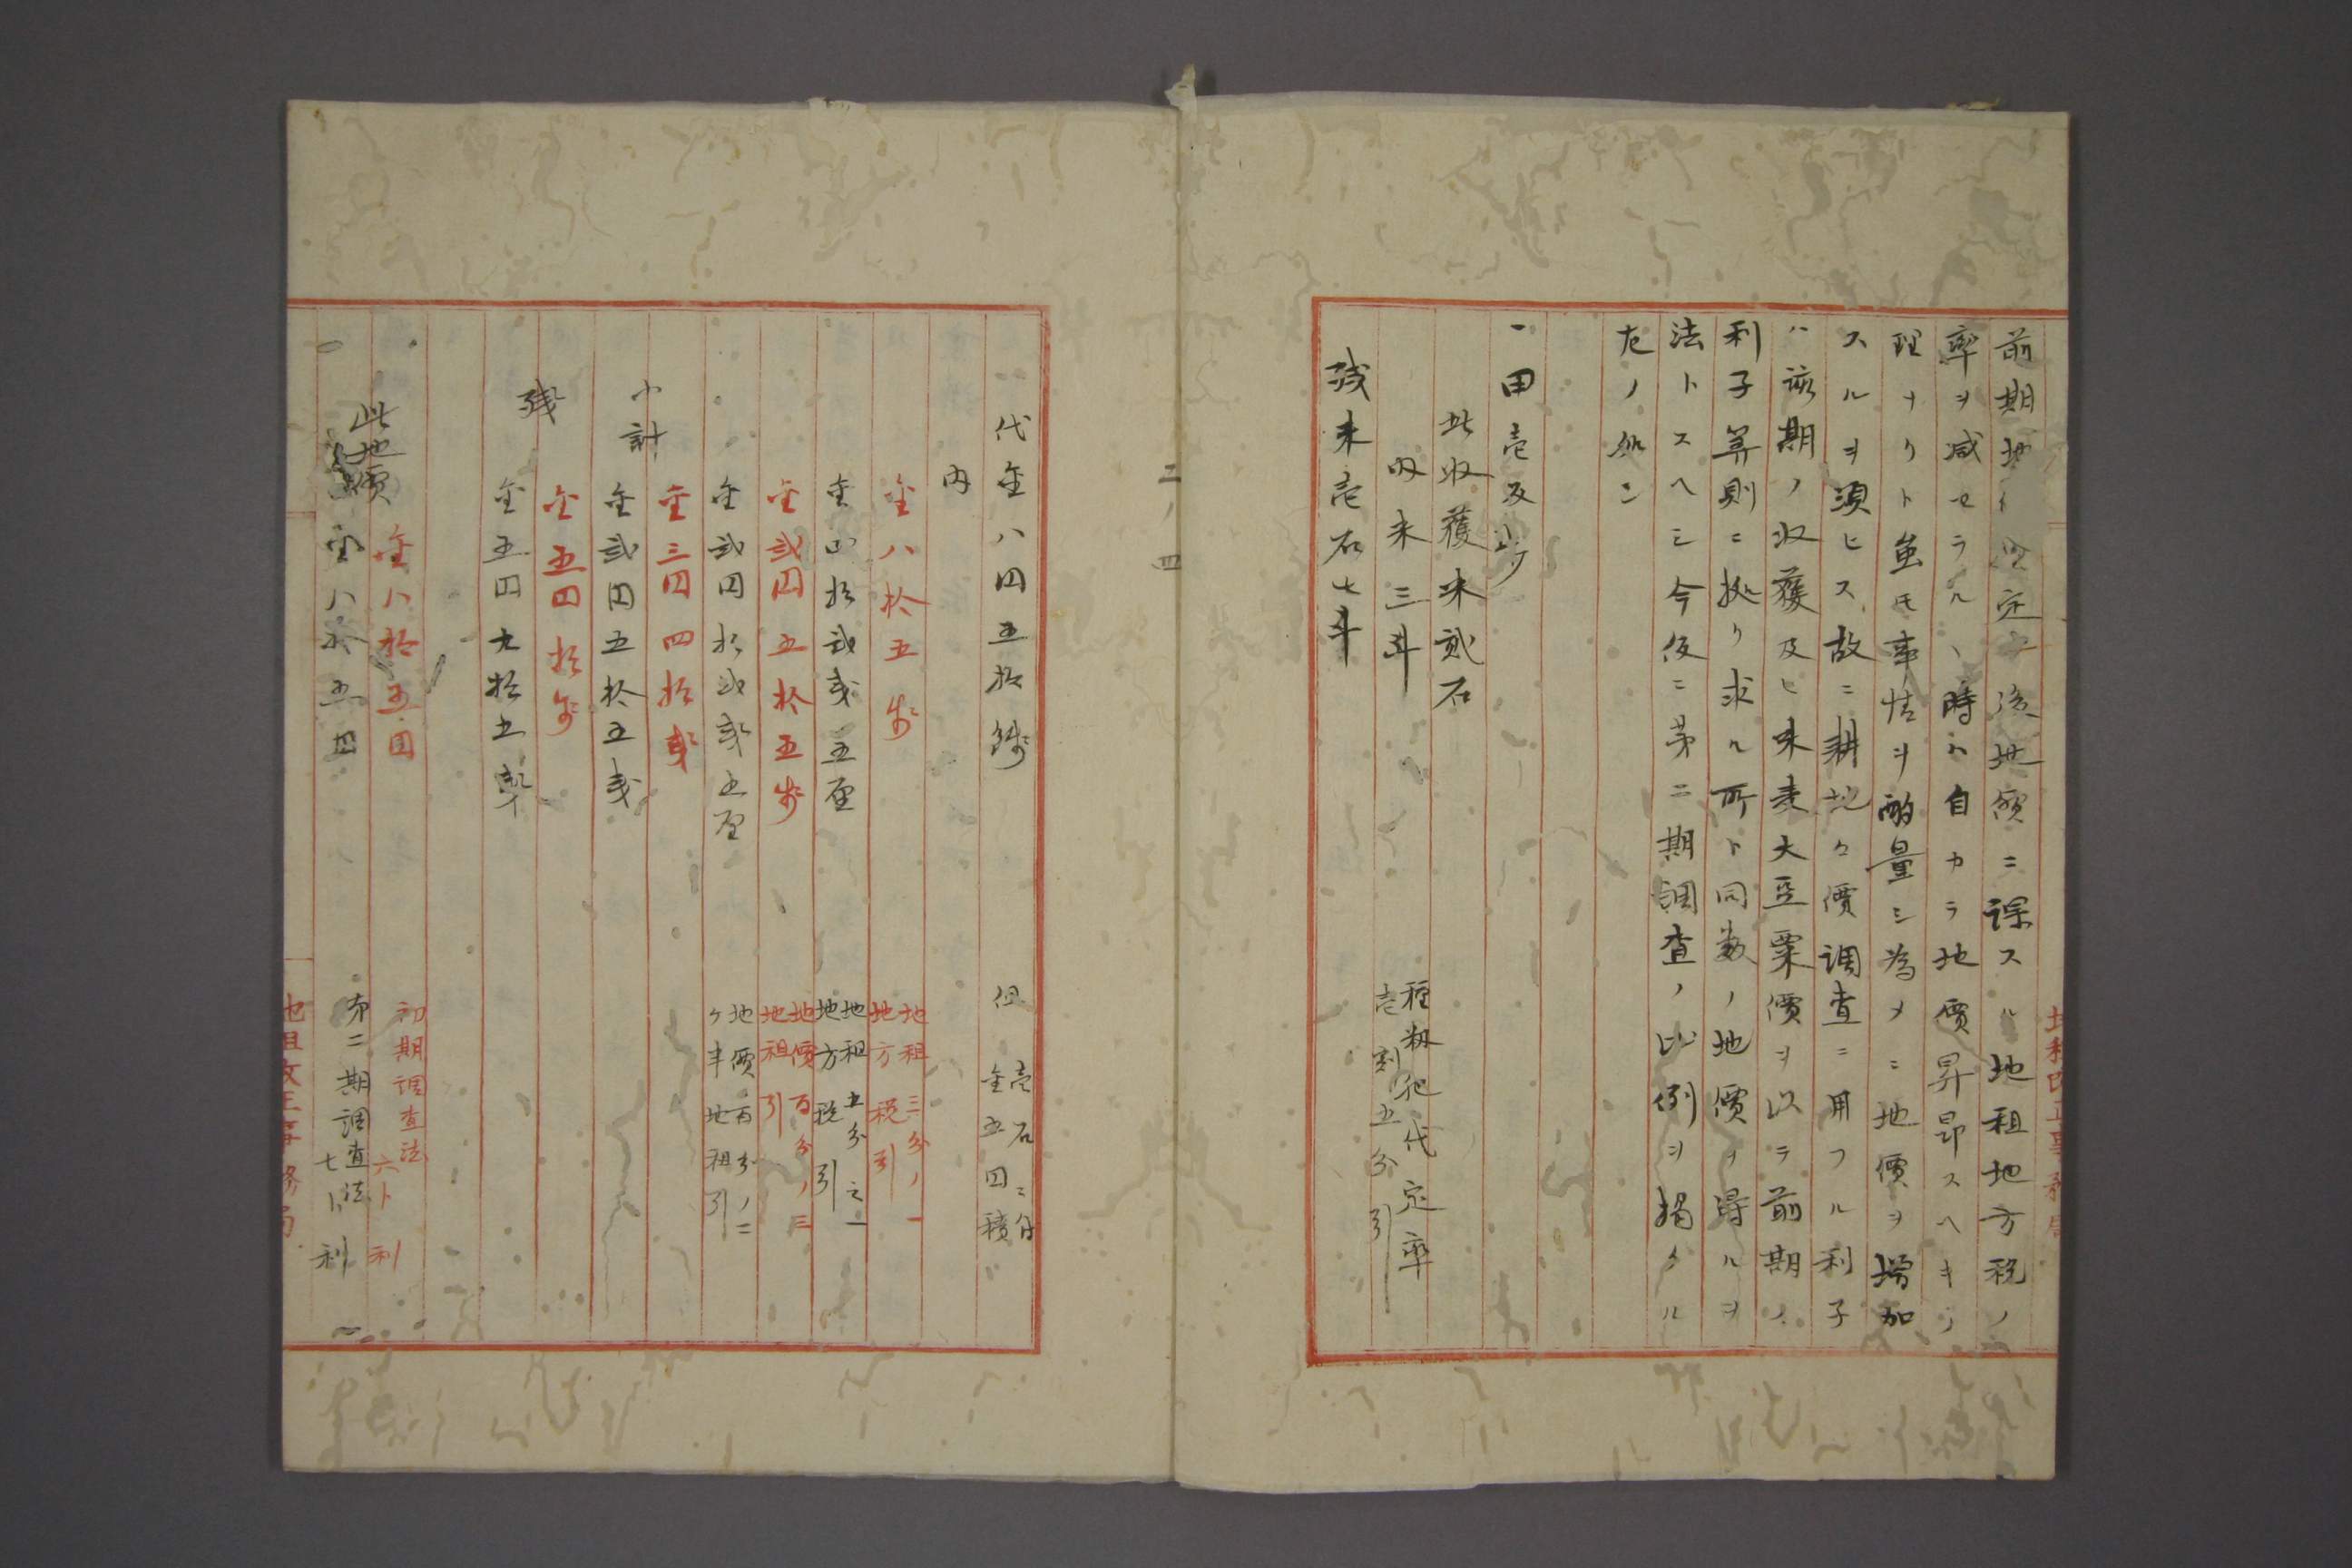 前期地價定テ後地價ニ課スル地租地方税ノ
率ヲ減セラル、時ハ自カラ地價昇昂スヘキノ
理ナリト虽モ事情ヲ酌量シ為メニ地價ヲ増加
スルヲ須ヒス故ニ耕地ノ價調査ニ用フル利子
ハ該期ノ収獲及ヒ米麦大豆粟價ヲ以テ前期ノ
利子算則ニ拠リ求ル所ト同数ノ地價ヲ得ルヲ
法トスヘシ今仮ニ第二期調査ノ比例ヲ掲クル
左ノ如シ
一田壱反歩
此収獲米貳石
内米三斗
種籾肥代定率
壱割五分引
残米壱石七斗
二ノ四
代金八円五拾銭
但
壱石ニ付
金五円積
内
金八拾五銭
地租三分ノ一
地方税引
金四拾弐銭五厘
地租五分之一
地方税引
金弐円五拾五銭
地價百分ノ三
地租引
金弐円拾弐銭五厘
地價百分ノ二
ケ半地租引
小計
金三円四拾銭
金弐円五拾五銭
残
金五円拾銭
金五円九拾五銭
此地價
金八拾五円
初期調査法
六卜利
金八拾五円
第二期調査法
七卜利
地租改正事務局